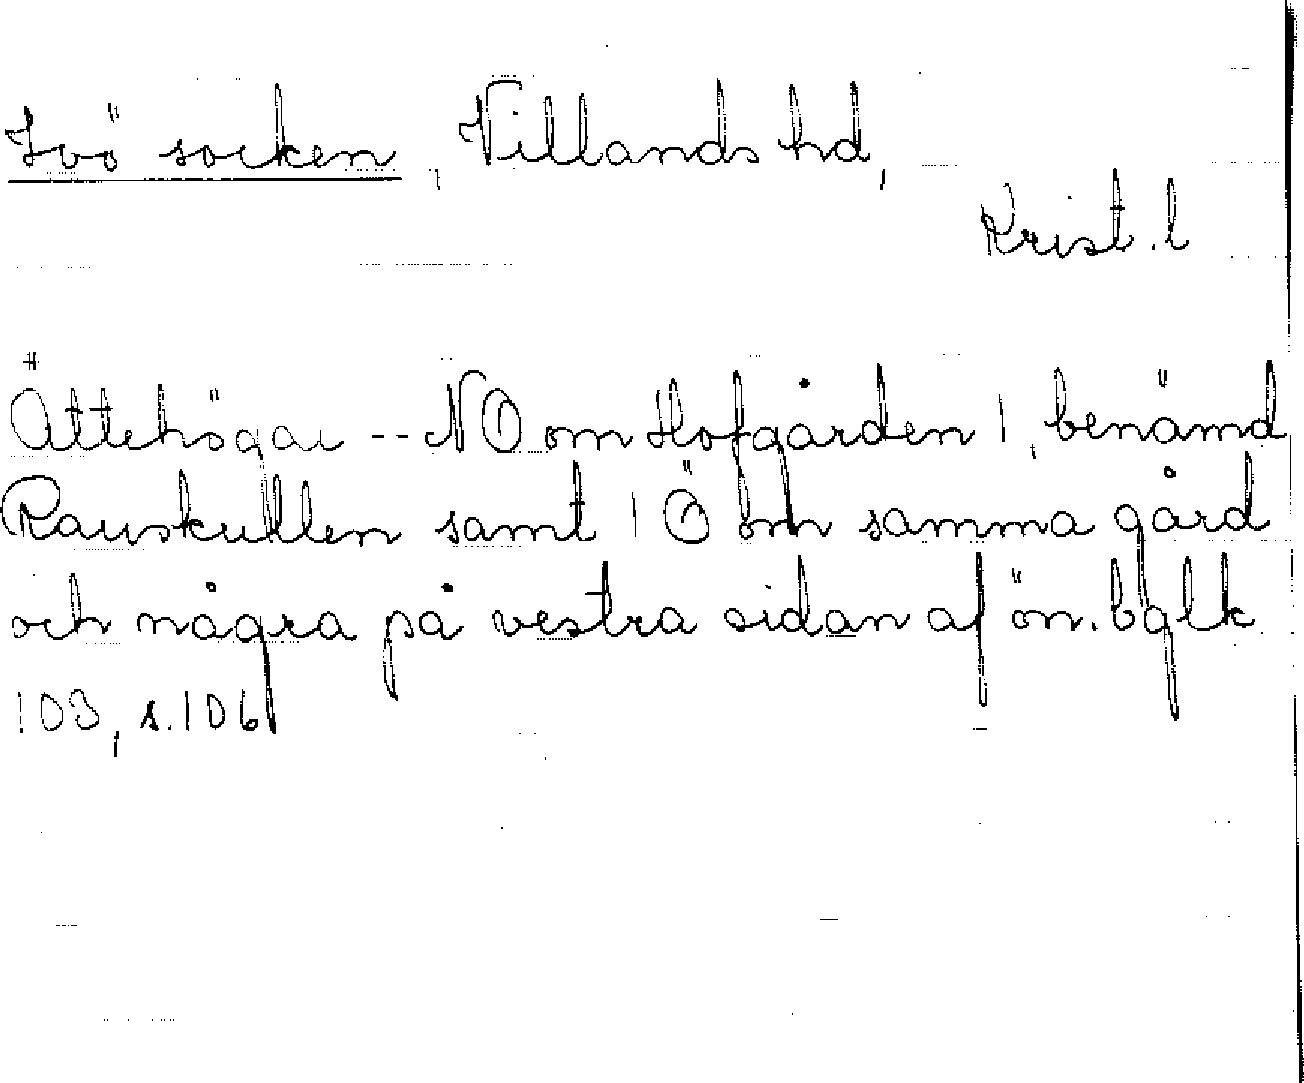 Ivö socken, Villands hd,
Krist. l
Ättehögar -- NO om Hofgården 1, benämd
Rauskullen samt 1 Ö om samma gård
och några på vestra sidan af ön. bglk
103, s. 106